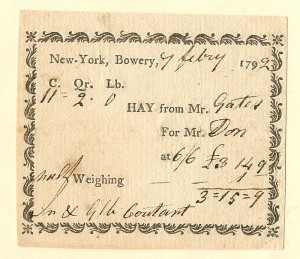 New-York, Bowery, 7 febry 1792
C. Qr. Lb.
11 = 2 . 0
HAY from Mr. Gates
For Mr. Don
at 6/6 £3 14 9
Weighing 1
3 = 15 = 9
Jn & Coutant